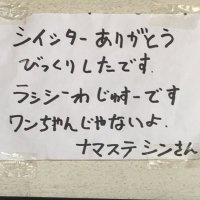 シイシターありがとう
びっくりしたです.
ラッシーわじゅすーです
ワンちゃんじゃないよ.
ナマステシンさん